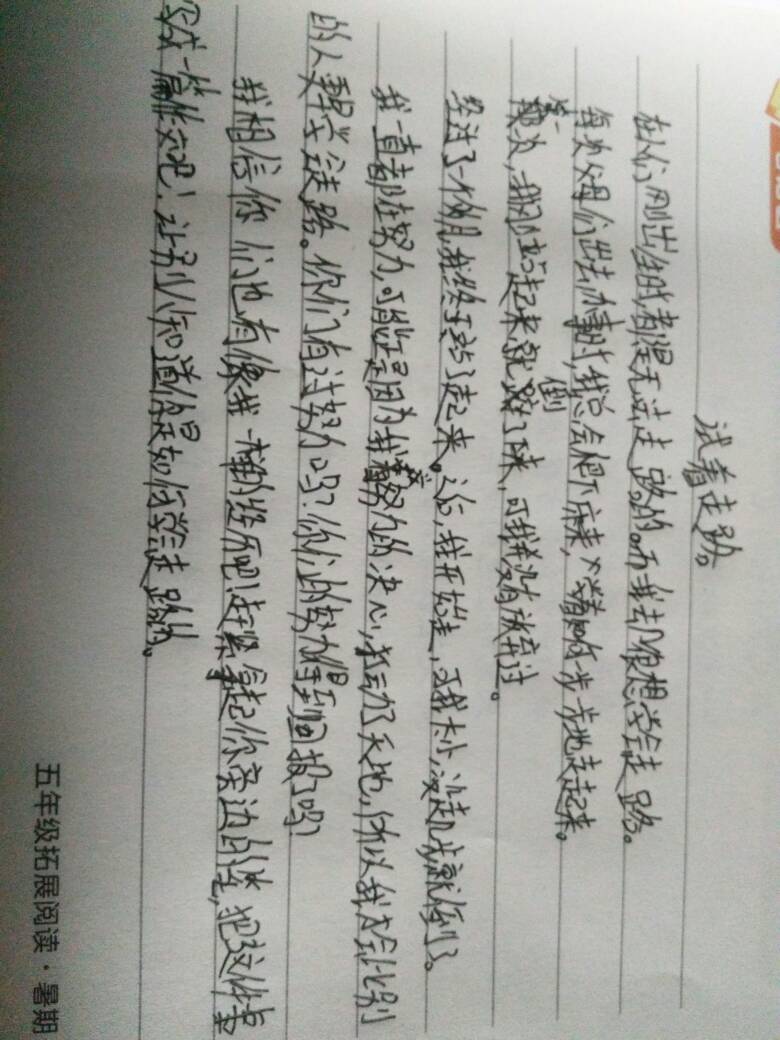 试着走路
在人们刚出生时,都是无法走路的。而我却很想学会走路。
每次父母们出去办事时,我总会爬下床来,学着一步一步地走起来。
第一次,我刚站起来就倒了下来,可我并没有放弃过。
经过了一个月,我终于站了起来。之后,我开始走,可我太小,没走几步就倒了。
我一直都在努力,可能正是因为我努力的决心,打动了天地,所以我才会比别
的人早学会走路。你们有过努力吗?你们的努力得到回报了吗?
我相信你们也有像我一样的经历吧!赶紧拿起你旁边的笔,把这件事
写成一篇作文吧!让别人知道你是如何学会走路的。
五年级拓展阅读·暑期